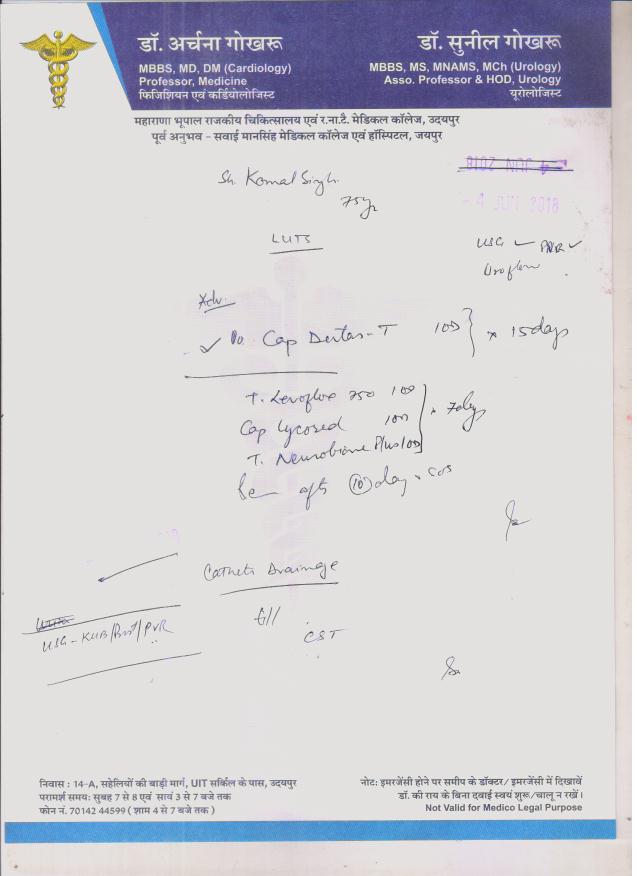 डॉ. अर्चना गोखरू
MBBS, MD, DM (Cardiology)
Professor, Medicine
फिजिशियन एवं कर्डियोलोजिस्ट
डॉ. सुनील गोखरू
MBBS, MS, MNAMS, MCh (Urology)
Asso. Professor & HOD, Urology
यूरोलोजिस्ट
महाराणा भूपाल राजकीय चिकित्सालय एवं र.ना.टै. मेडिकल कॉलेज, उदयपुर
पूर्व अनुभव - सवाई मानसिंह मेडिकल कॉलेज एवं हॉस्पिटल, जयपुर
- 4 JUN 2018
- 4 JUN 2018
Sh. Komal Singh
75yr
LUTS
USG ✓ PVR ✓
Uroflow
Adv.
✓ Cap T 10D } x 15 days
T. Levoflox 750 10D
Cap Lycored 10D } x 7 days
T. Neurobion Plus 10D
after (10) day
Catheter Drainage
CST
USG - KUB/Prost/PVR
निवास : 14-A, सहेलियों की बाड़ी मार्ग, UIT सर्किल के पास, उदयपुर
परामर्श समय: सुबह 7 से 8 एवं सायं 3 से 7 बजे तक
फोन नं. 70142 44599 ( शाम 4 से 7 बजे तक )
नोट: इमरजेंसी होने पर समीप के डॉक्टर/ इमरजेंसी में दिखावें
डॉ. की राय के बिना दवाई स्वयं शुरू/चालू न रखें।
Not Valid for Medico Legal Purpose